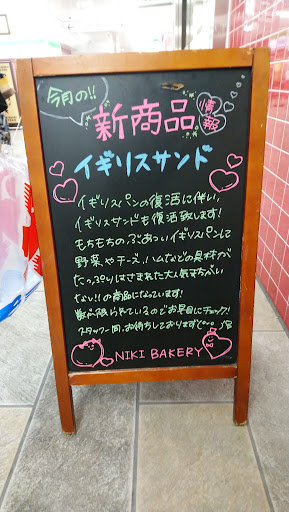 今月の!!
新商品
情報
イギリスサンド
イギリスパンの復活に伴い、
イギリスサンドも復活致します!
もちもちのぶあついイギリスパンして
野菜やチーズ、ハムなどの具材が
たっぷりはさまれた大人気まちがい
なし!!の商品になっています!
数が限られているのでお早目にチェック!
スタッフ一同、お待ちしております
NIKI BAKERY